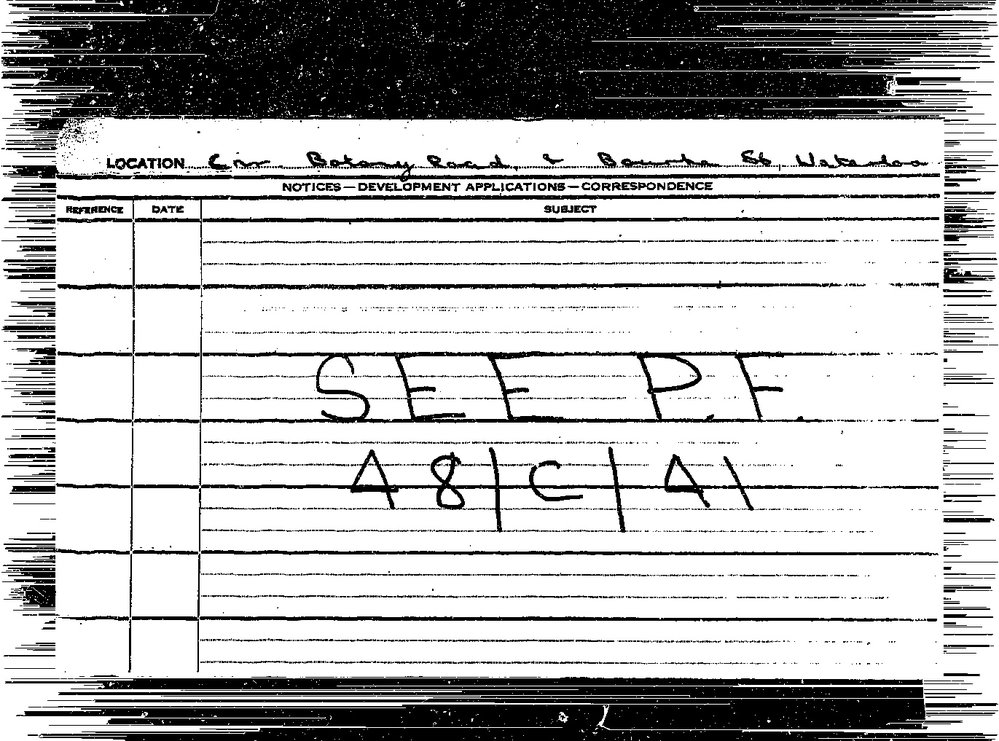 LOCATION Cnr. Botany Road & Bourke St, Waterloo
NOTICES—DEVELOPMENT APPLICATIONS—CORRESPONDENCE
REFERENCE DATE SUBJECT
SEE P.F.
48/C/41